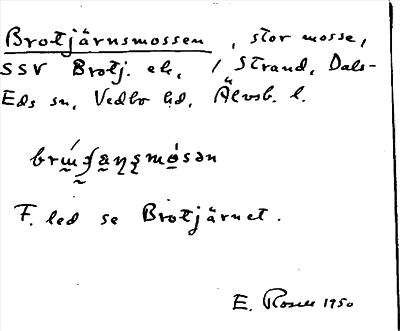 Brotjärnsmossen, stor mosse,
SSV Brotj. ek, / Strand, Dals-
Eds sn, Vedbo hd, Älvsb. l.
F. led se Brotjärnet.
E. 1950